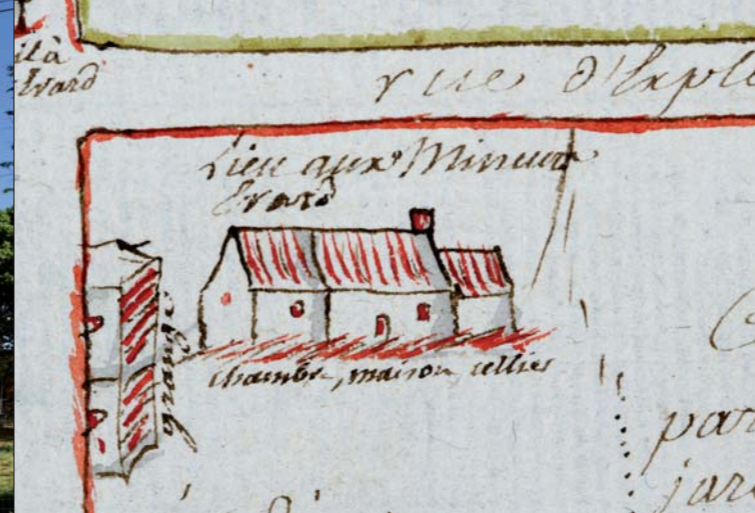 à
Evard
rue d'Espl
Lieu aux Mineurs
Evard
grange
chambre, maison cellier
par
jar